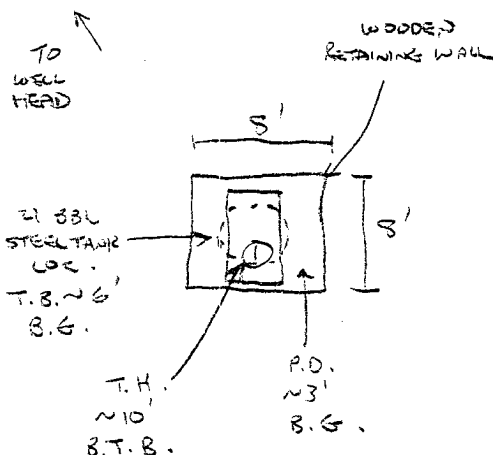 TO
WELL
HEAD
WOODEN
RETAINING WALL
8'
8'
21 BBL
STEEL TANK
LOC.
T.B. ~ 6'
B.G.
1
T.H.
~10'
B.T.B.
P.D.
~3'
B.G.